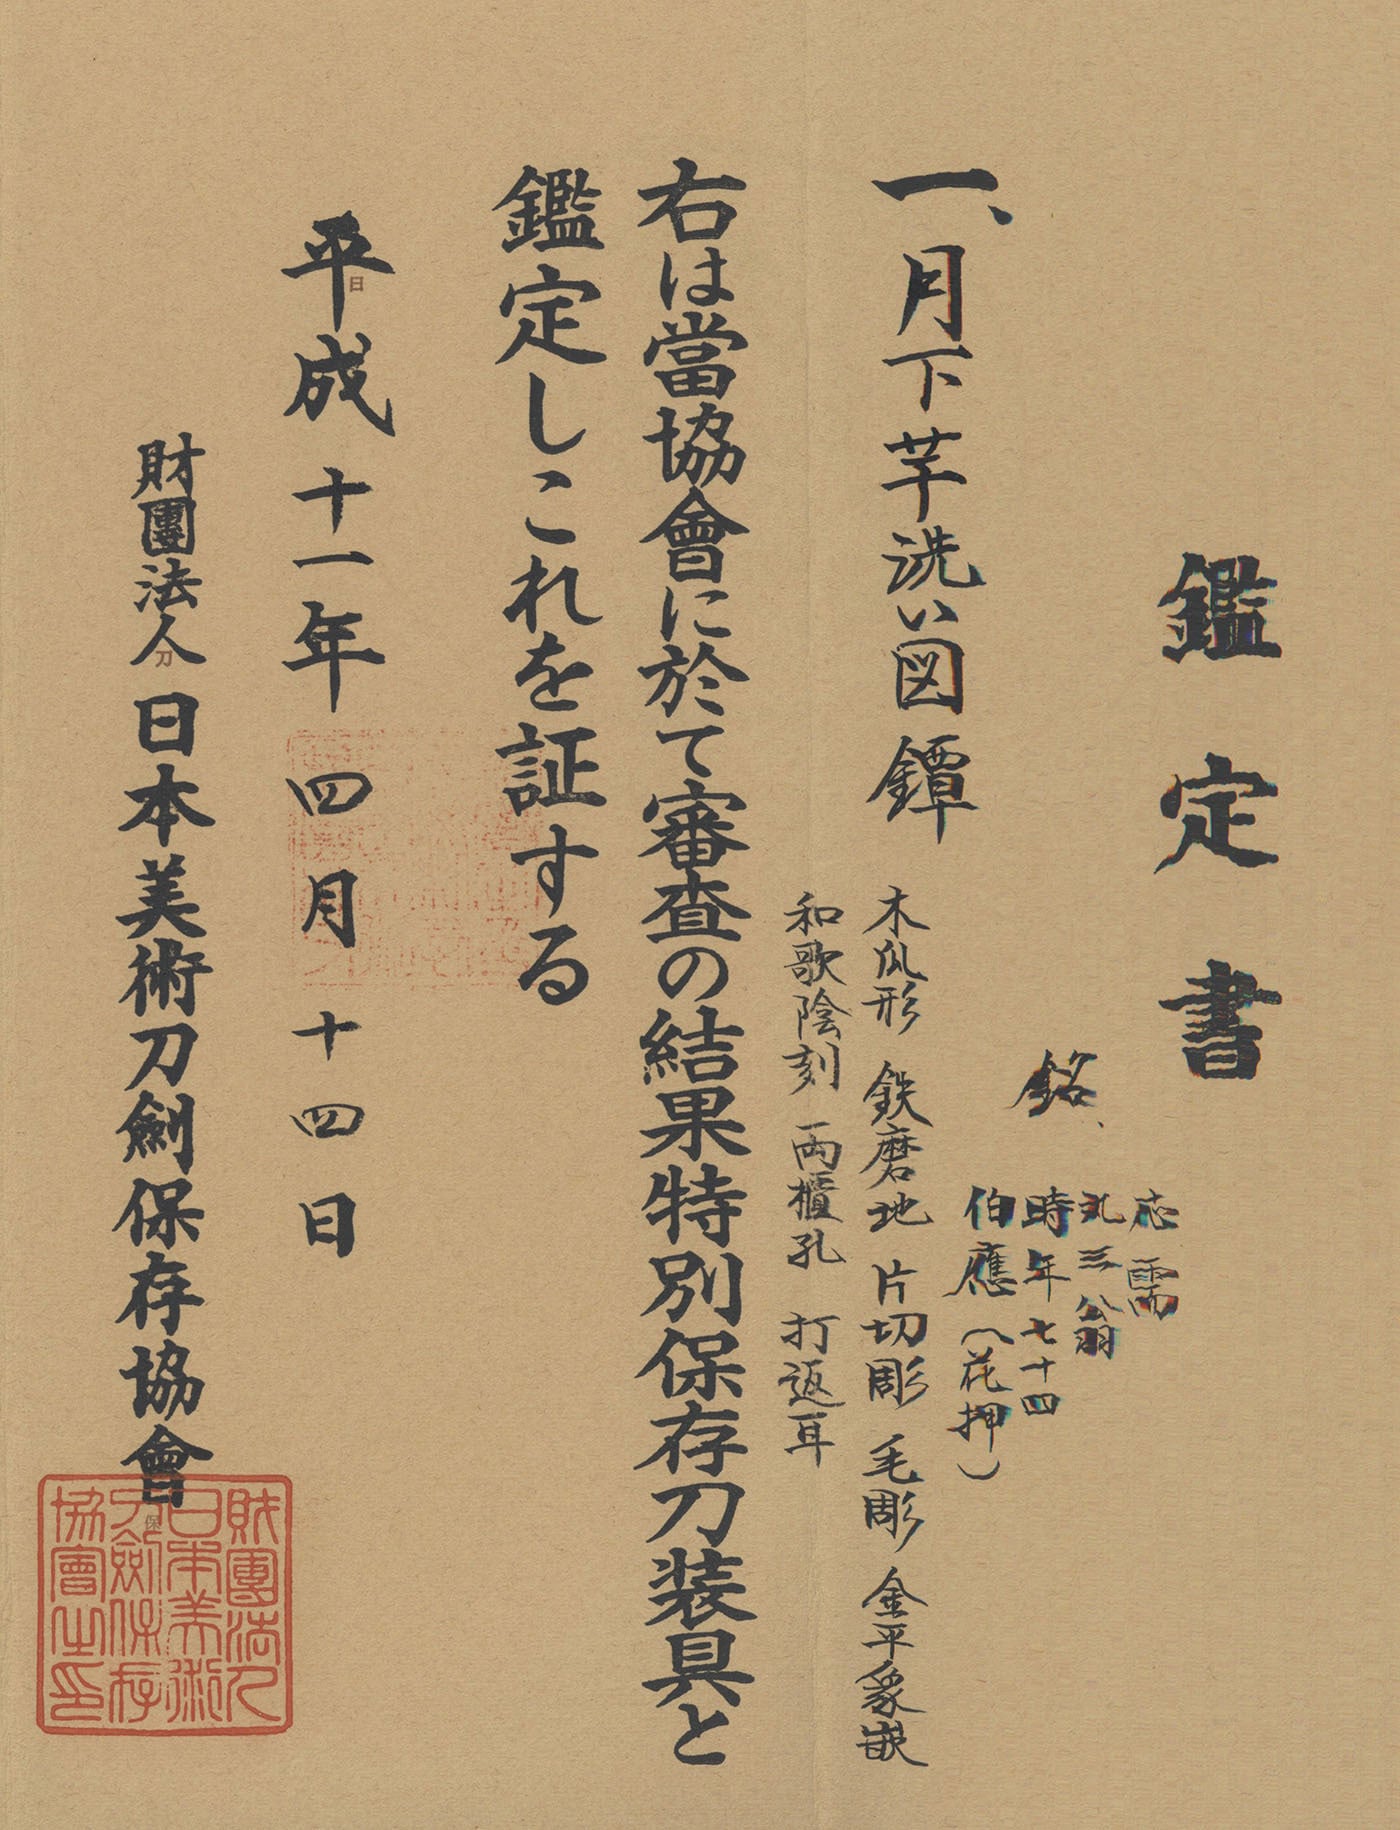 鑑定書
一、月下芋洗い図鐔
銘、
応需
丸三公翁
時年七十四
伯應（花押）
木瓜形 鉄磨地 片切彫 毛彫 金平象嵌
和歌陰刻 両櫃孔 打返耳
右は當協會に於て審査の結果特別保存刀装具と
鑑定しこれを証する
平成十一年四月十四日
財團法人日本美術刀劍保存協會
財團法人
日本美術
刀劍保存
協會之印
日
刀
保